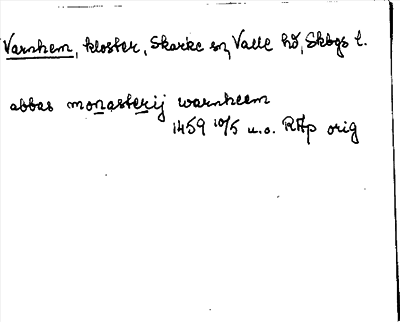 Varnhem, kloster, Skarke sn, Valle hd, Skbgs l.
abbas monasterij warnheem
1459 10/5 u.o. RAp orig